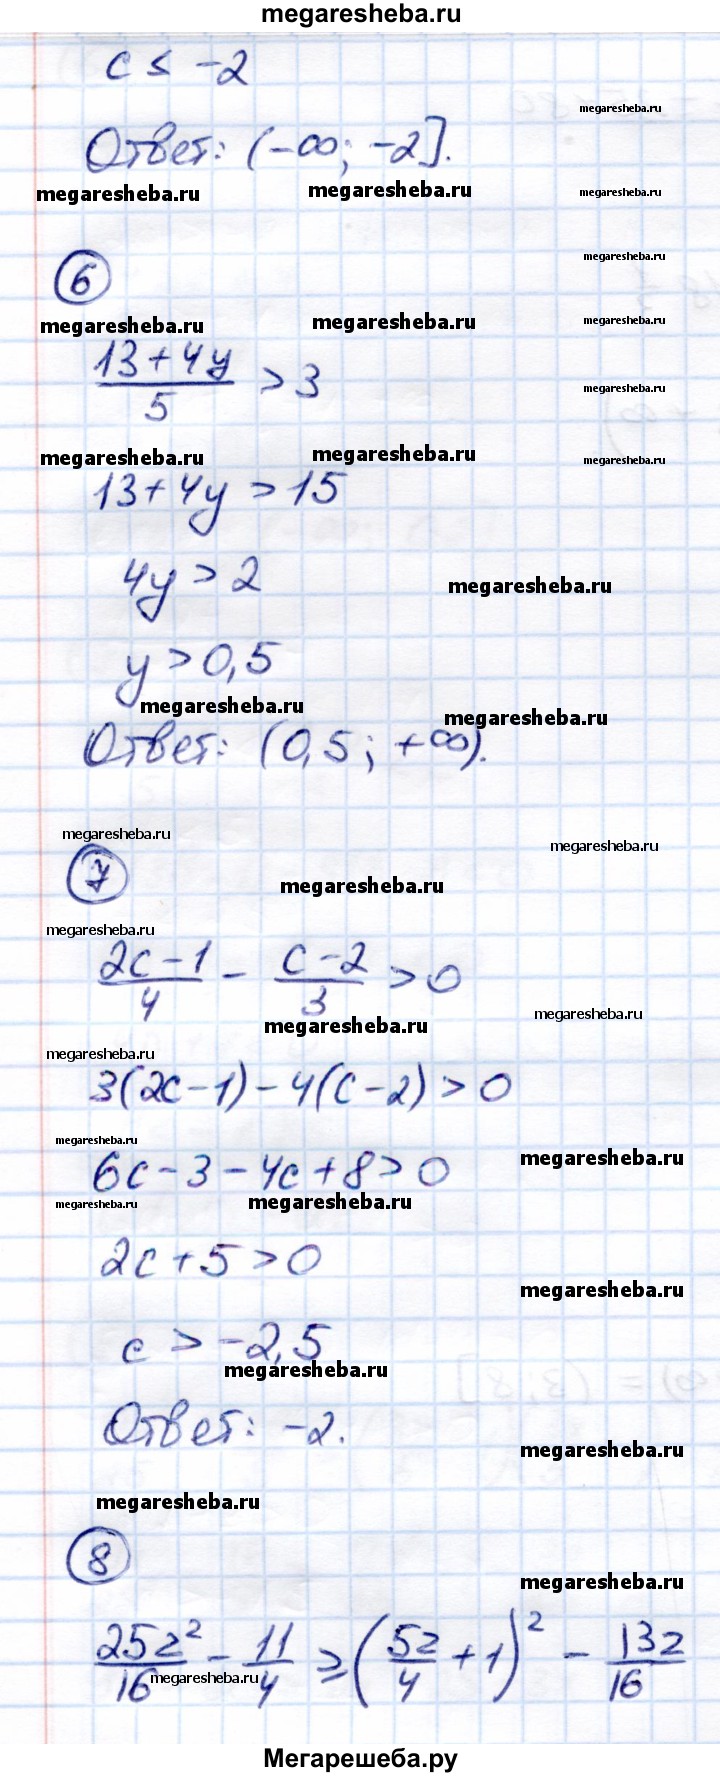 megaresheba.ru
c ≤ -2
megaresheba.ru
Ответ: (-∞; -2].
megaresheba.ru megaresheba.ru megaresheba.ru
6
megaresheba.ru
megaresheba.ru megaresheba.ru megaresheba.ru
(13+4y)/5 > 3
megaresheba.ru
megaresheba.ru megaresheba.ru megaresheba.ru
13+4y > 15
4y > 2
megaresheba.ru
y > 0,5
megaresheba.ru megaresheba.ru
Ответ: (0,5; +∞).
megaresheba.ru megaresheba.ru
7
megaresheba.ru
megaresheba.ru
(2c-1)/4 - (c-2)/3 > 0
megaresheba.ru megaresheba.ru
megaresheba.ru
3(2c-1)-4(c-2) > 0
megaresheba.ru megaresheba.ru
6c-3-4c+8 > 0
megaresheba.ru megaresheba.ru
2c+5 > 0
megaresheba.ru
c > -2,5
megaresheba.ru
Ответ: -2.
megaresheba.ru
megaresheba.ru
8
megaresheba.ru
25z²/16 - 11/4 ≥ (5z/4 + 1)² - 13z/16
megaresheba.ru
Мегарешеба.ру